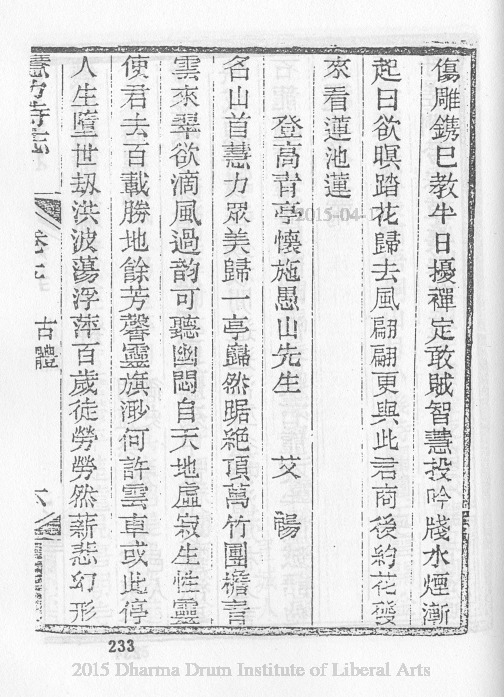 傷雕鐫已教半日擾禪定敢賊智慧投吟牋水煙漸
起日欲暝踏花歸去風翩翩更與此君商後約花發
來看蓮池蓮
登高青亭懷施愚山先生 艾暢
名山首慧力眾美歸一亭巋然踞絕頂萬竹團檐青
雲來翠欲滴風過韵可聽幽悶自天地虛寂生性靈
使君去百載勝地餘芳馨靈旗渺何許雲車或此停
人生墮世劫洪波蕩浮萍百歲徒勞勞然薪悲幻形
慧力寺志 卷 古體 六
233
2015-04-1
2015 Dharma Drum Institute of Liberal Arts